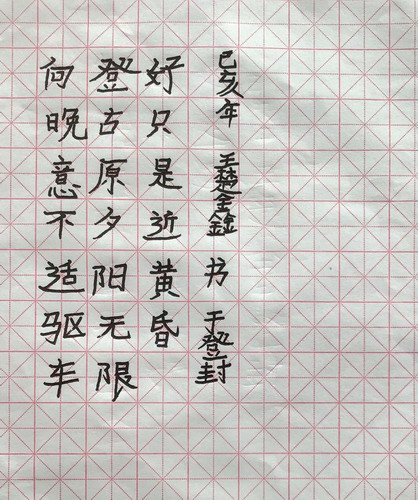 向晚意不适驱车
登古原夕阳无限
好只是近黄昏
己亥年 王楚鑫 书 于登封